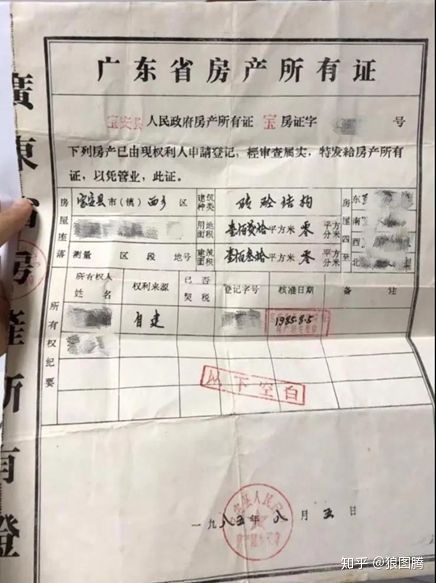 广东省房产所有证
宝安县人民政府房产所有证 宝 房证字 号
下列房产已由现权利人申請登记，經审查属实，特发給房产所有
证，以凭管业，此证。
房屋座落 宝安县市(镇)西乡区 建筑种类 砖砼结构 房屋四至 东
用地面积 平方米 平方米 南
西
测量 区 段 地号 建筑面积 平方米 平方米 北
所有权纪要 所有权人姓名 权利来源 已否契税 登记字号 核准日期 备注
自建 1985.8.5
以下空白
一九八五年八月五日
廣東省房產所有證
知乎 @狼图腾